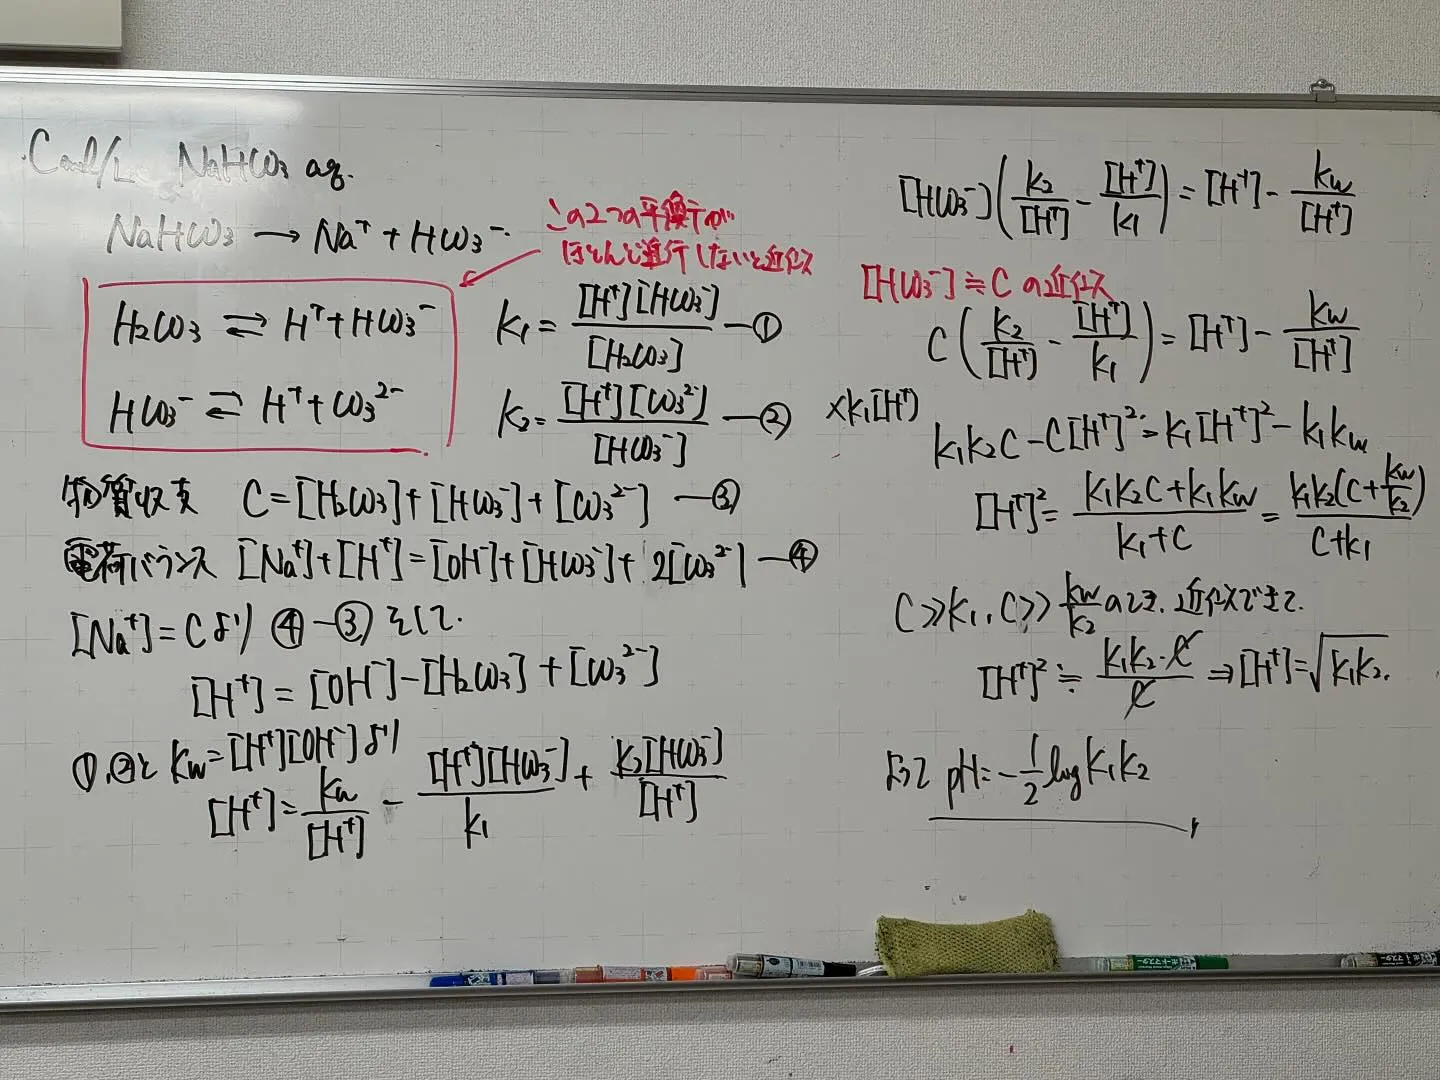 C mol/L NaHCO3 aq.
NaHCO3 → Na⁺ + HCO3⁻
この2つの平衡が
ほとんど進行しないと近似
H2CO3 ⇄ H⁺ + HCO3⁻
K1 = [H⁺][HCO3⁻] / [H2CO3] —①
HCO3⁻ ⇄ H⁺ + CO3²⁻
K2 = [H⁺][CO3²⁻] / [HCO3⁻] —②
物質収支 C = [H2CO3] + [HCO3⁻] + [CO3²⁻] —③
電荷バランス [Na⁺] + [H⁺] = [OH⁻] + [HCO3⁻] + 2[CO3²⁻] —④
[Na⁺] = C より ④ − ③ をして.
[H⁺] = [OH⁻] − [H2CO3] + [CO3²⁻]
①,②と Kw = [H⁺][OH⁻] より
[H⁺] = Kw / [H⁺] − [H⁺][HCO3⁻] / K1 + K2[HCO3⁻] / [H⁺]
[HCO3⁻] (K2 / [H⁺] − [H⁺] / K1) = [H⁺] − Kw / [H⁺]
[HCO3⁻] ≒ C の近似
C (K2 / [H⁺] − [H⁺] / K1) = [H⁺] − Kw / [H⁺]
×K1[H⁺]
K1K2C − C[H⁺]² = K1[H⁺]² − K1Kw
[H⁺]² = (K1K2C + K1Kw) / (K1 + C) = K1K2(C + Kw / K2) / (C + K1)
C ≫ K1, C ≫ Kw / K2 のとき. 近似できて.
[H⁺]² ≒ K1K2・C / C ⇒ [H⁺] = √K1K2.
よって pH = −1/2 log K1K2